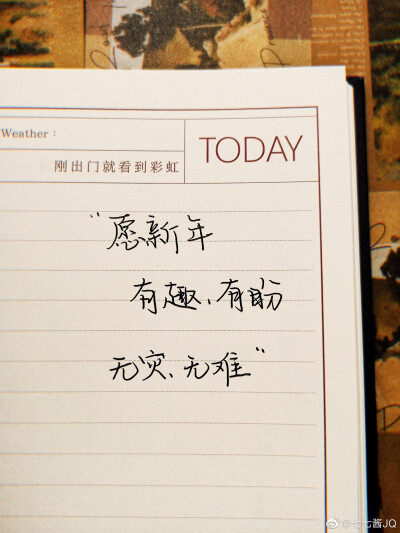 Weather：
刚出门就看到彩虹
TODAY
“愿新年
有趣、有盼
无灾、无难”
@七七酱JQ